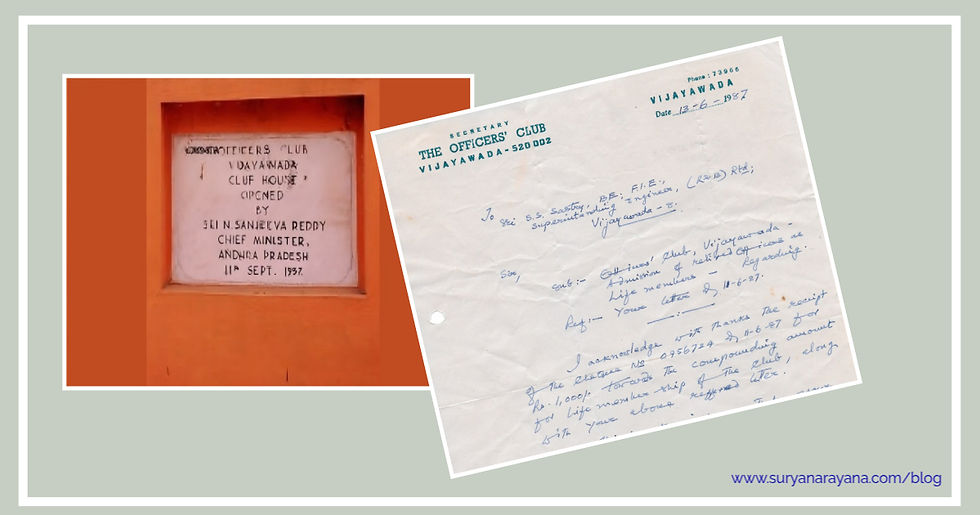 OFFICERS CLUB
VIJAYAWADA
CLUF HOUSE
OPENED
BY
SRI N. SANJEEVA REDDY
CHIEF MINISTER,
ANDHRA PRADESH
11th SEPT. 1957.
SECRETARY
THE OFFICERS' CLUB
VIJAYAWADA-520 002
Phone: 73966
VIJAYAWADA
Date 13-6-1987
To
Sri S.S. Sastry, BE. F.I.E.,
Superintending Engineer, (R&B) Rtd;
Vijayawada - 2.
Sir,
Sub:- Officers' Club, Vijayawada -
Admission of retired Officers as
Life members - Regarding.
Ref:- Your letter D/ 11-6-87.
I acknowledge with thanks the receipt
of the cheque No 0956724 D/ 11-6-87 for
Rs. 1,000/- towards the compounding amount
for Life member ship of the Club, along
with your above reffered letter.
www.suryanarayana.com/blog